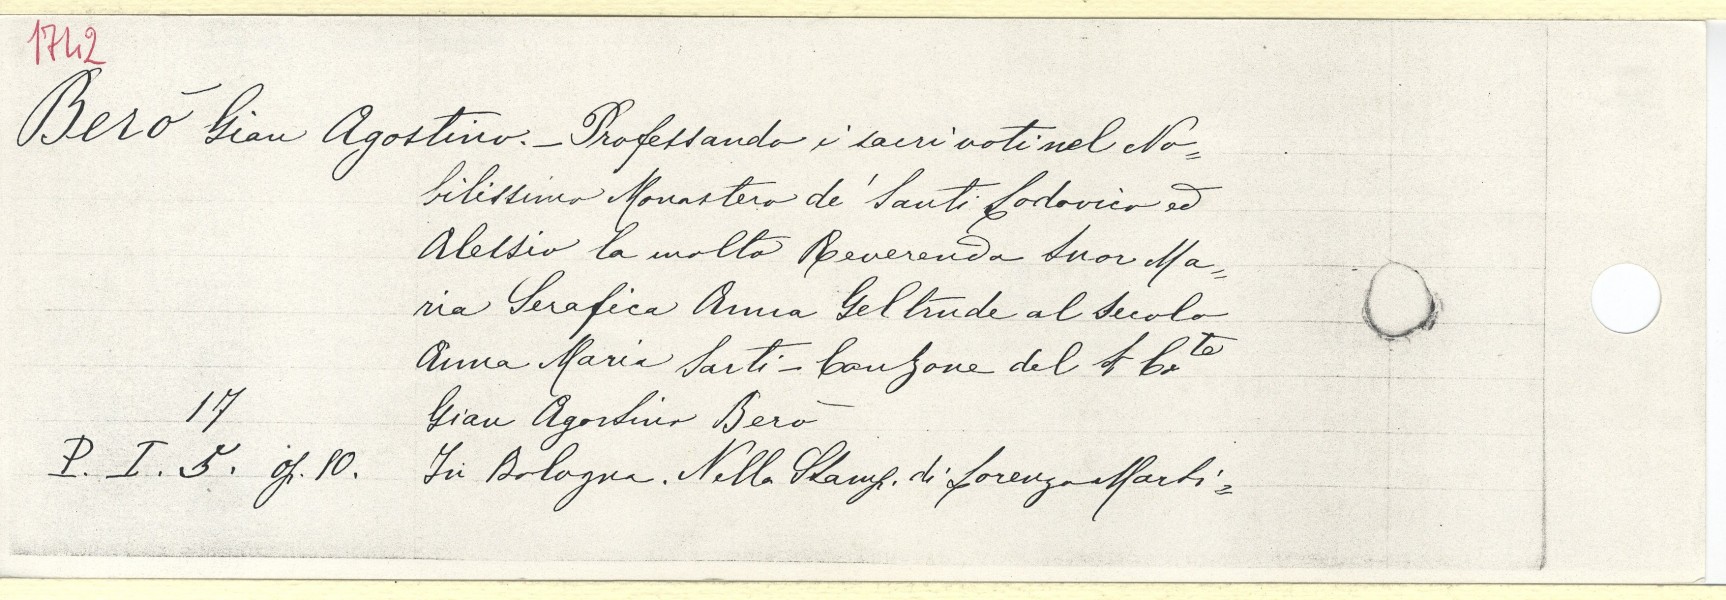 1742
Berò Gian Agostino. – Professando i sacri voti nel No=
bilissimo Monastero de' Santi Lodovico ed
Alessio la molto Reverenda Suor Ma=
ria Serafica Anna Geltrude al secolo
Anna Maria Sarti – Canzone del Co.te
Gian Agostino Berò
17
P. I. 5. op. 10. In Bologna. Nella Stamp. di Lorenzo Marti=